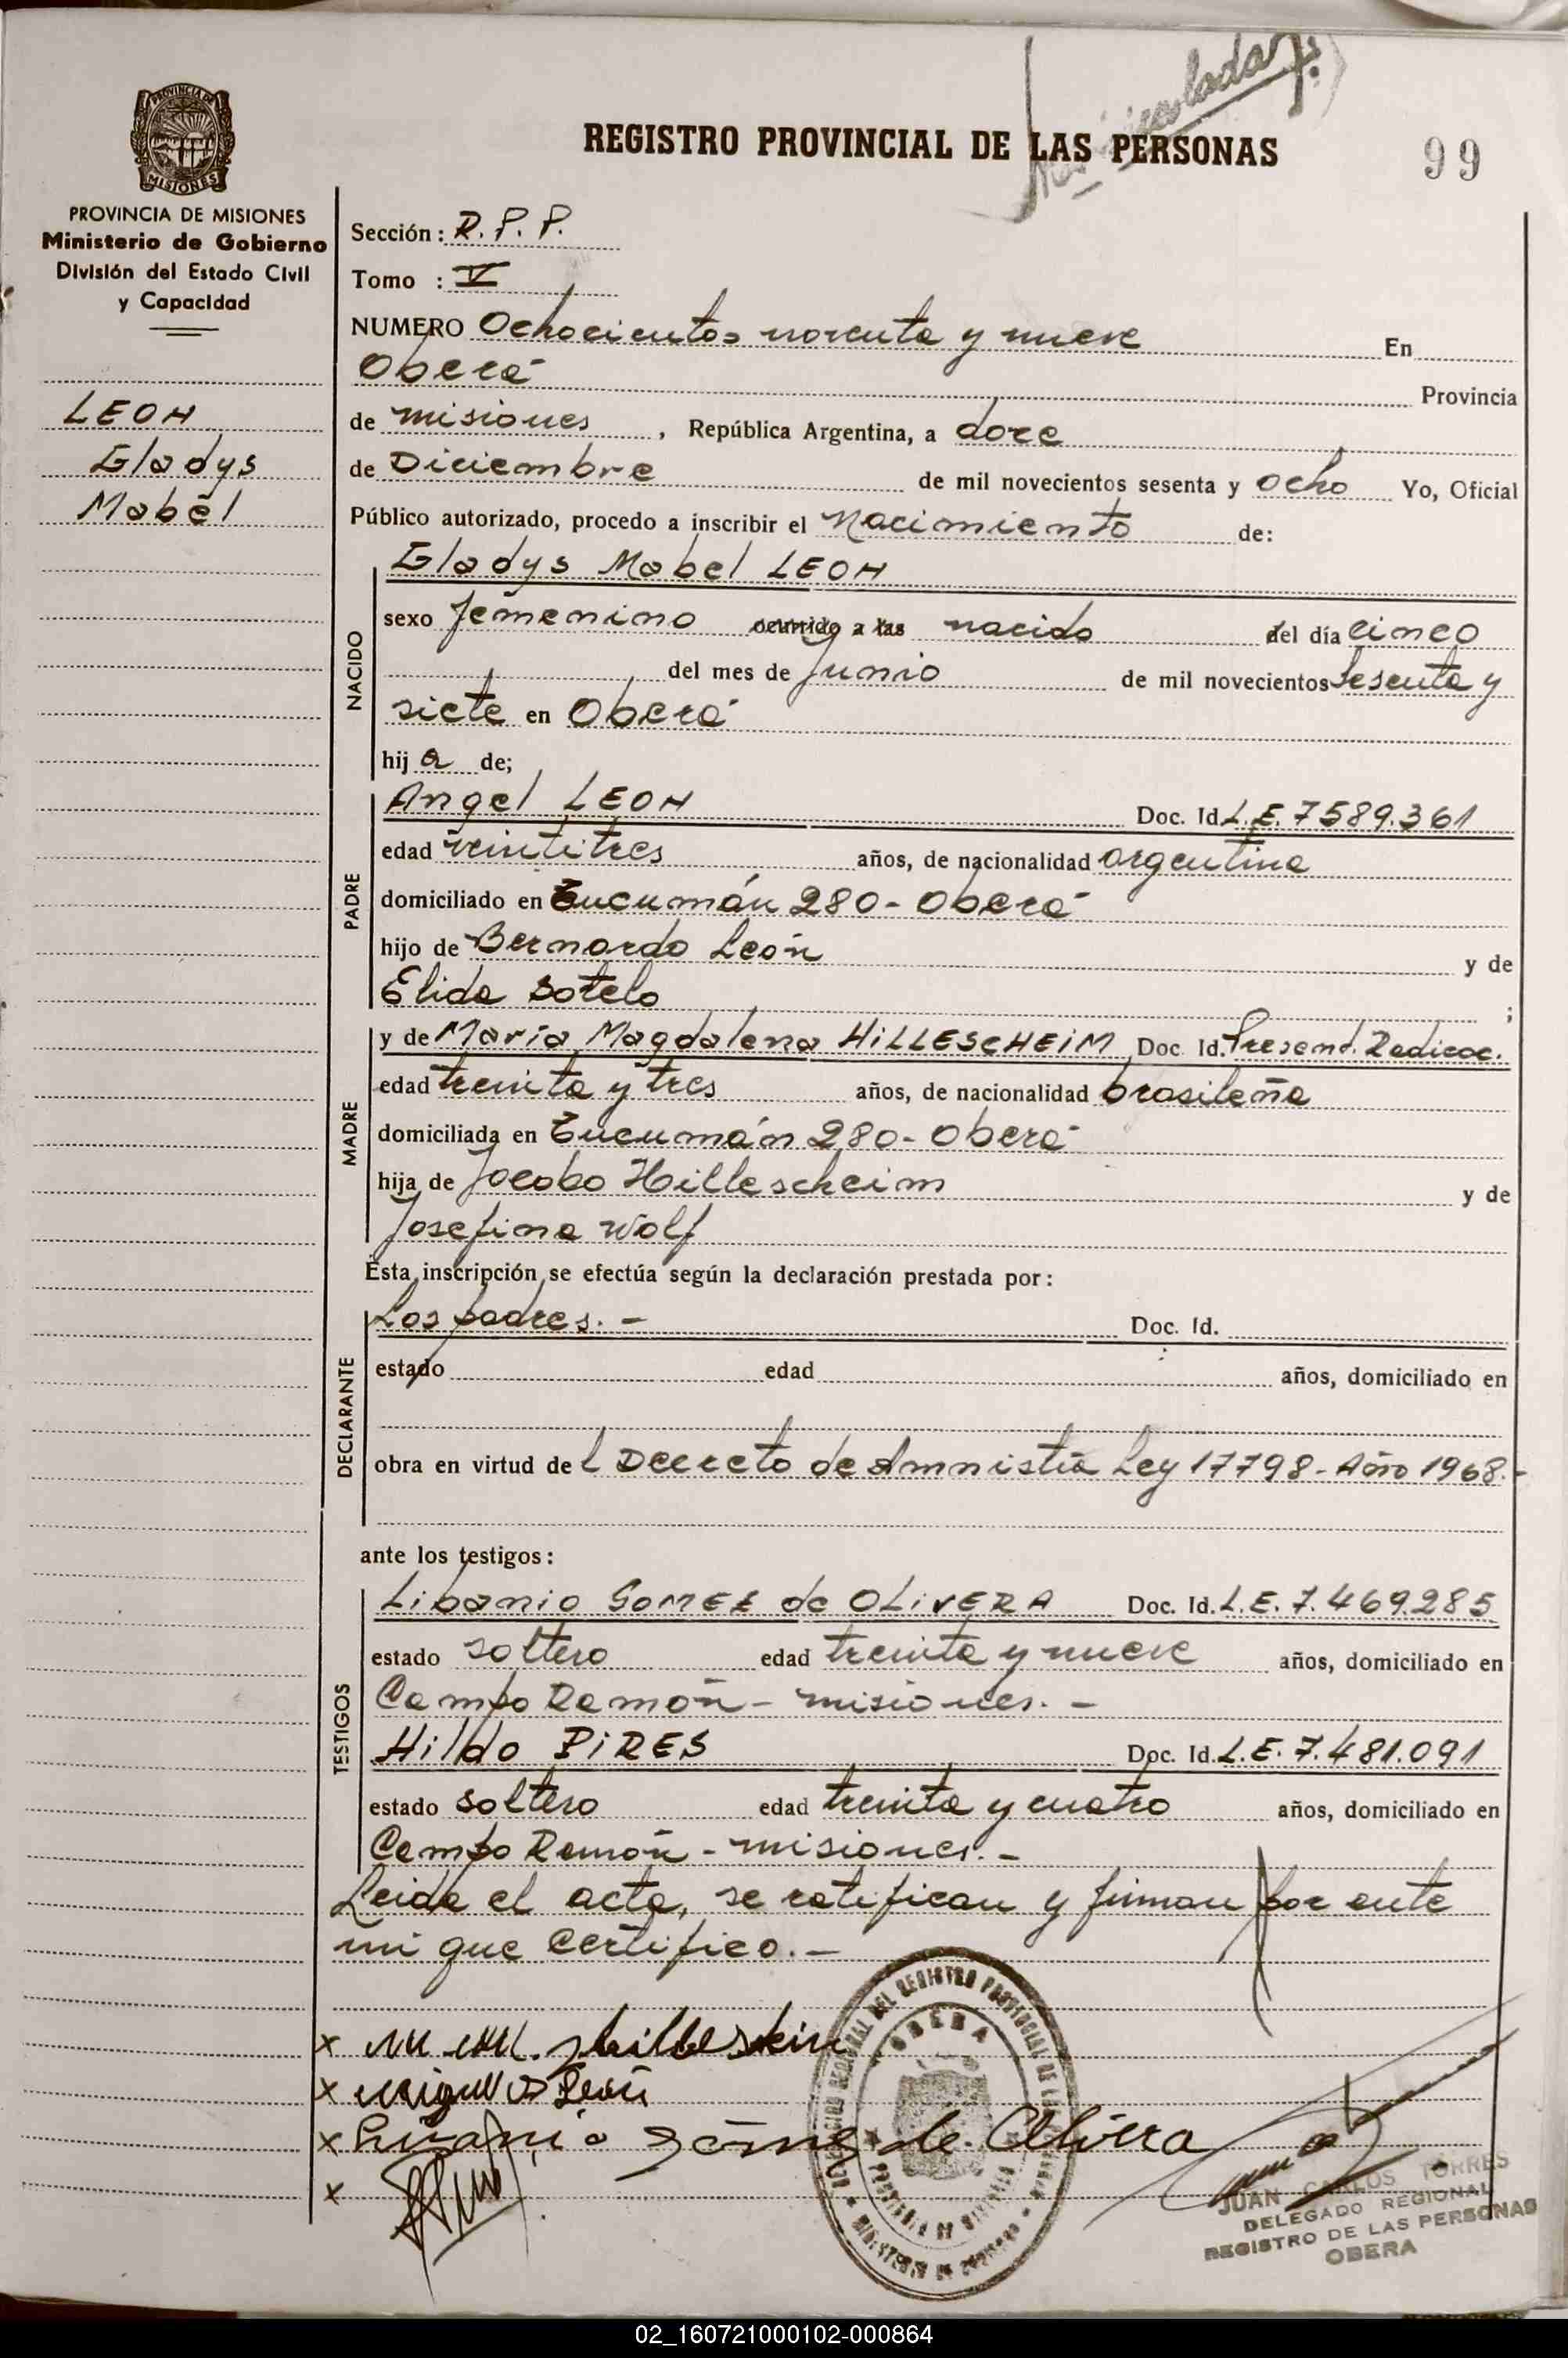 REGISTRO PROVINCIAL DE LAS PERSONAS
99
PROVINCIA DE MISIONES
MISIONES
PROVINCIA DE MISIONES
Ministerio de Gobierno
División del Estado Civil
y Capacidad
LEON
Gladys
Mabel
Sección: R.P.P.
Tomo : V
NUMERO Ochocientos noventa y nueve En
Oberá Provincia
de misiones, República Argentina, a doce
de Diciembre de mil novecientos sesenta y ocho Yo, Oficial
Público autorizado, procedo a inscribir el Nacimiento de:
NACIDO
Gladys Mabel LEON
sexo femenino ocurrido a las nacido del día cinco
del mes de Junio de mil novecientos sesenta y
siete en Oberá
hij a de;
PADRE
Angel LEON Doc. Id. L.E. 7589.361
edad veintitres años, de nacionalidad argentina
domiciliado en Tucumán 280 - Oberá
hijo de Bernardo León y de
Elida Sotelo ;
MADRE
y de María Magdalena HILLESCHEIM Doc. Id. Presend. Radicac.
edad treinta y tres años, de nacionalidad brasileña
domiciliada en Tucumán 280 - Oberá
hija de Jocobo Hillescheim y de
Josefina Wolf
Esta inscripción se efectúa según la declaración prestada por:
DECLARANTE
Los padres. - Doc. Id.
estado edad años, domiciliado en
obra en virtud del Decreto de Amnistía Ley 17798 - Año 1968. -
ante los testigos:
TESTIGOS
Libanio GOMEZ de OLIVERA Doc. Id. L.E. 7.469.285
estado soltero edad treinta y nueve años, domiciliado en
Campo Ramón - misiones. -
Hildo PIRES Doc. Id. L.E. 7.481.091
estado soltero edad treinta y cuatro años, domiciliado en
Campo Ramón - misiones. -
Leida el acta, se ratifican y firman por ante
mi que certifico. -
x
x León
x de Olivera
x
OBERA
JUAN CARLOS TORRES
DELEGADO REGIONAL
REGISTRO DE LAS PERSONAS
OBERA
02_160721000102-000864